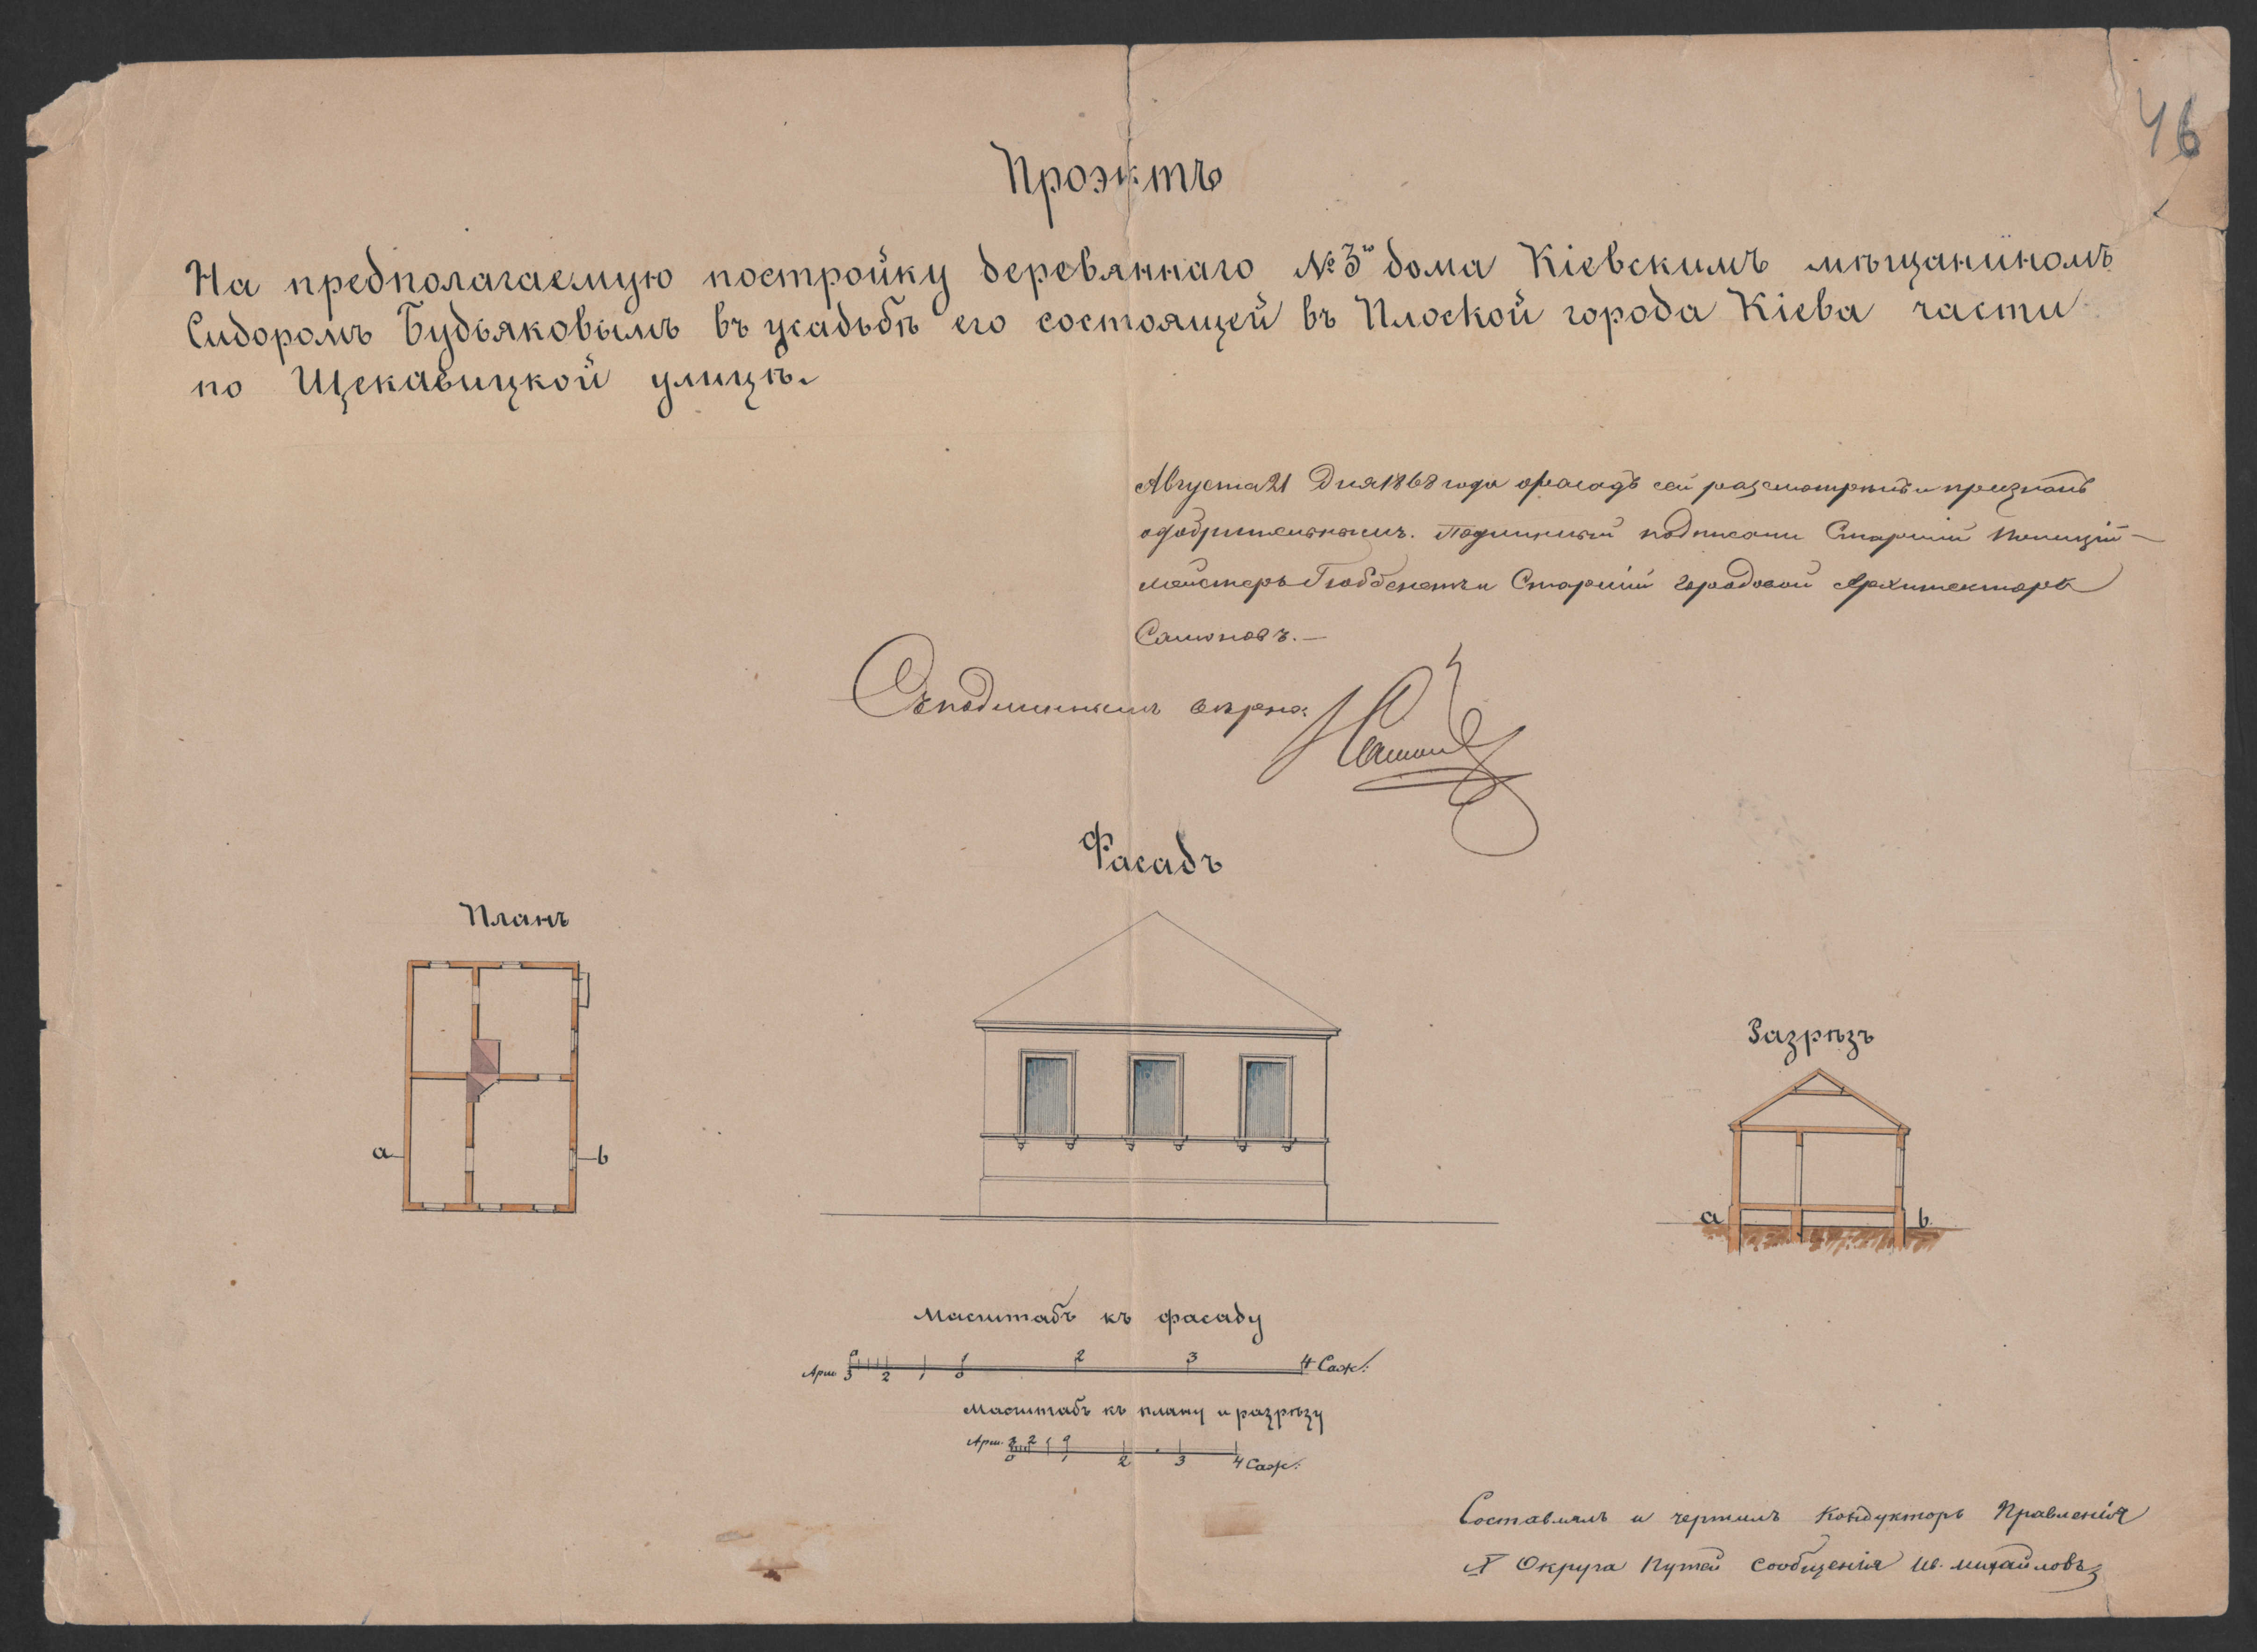 46
Проэктъ
На предполагаемую постройку деревяннаго № 3го дома Кіевскимъ мѣщаниномъ
Сидоромъ Будьяковымъ въ усадьбѣ его состоящей въ Плоской города Кіева части
по Щекавицкой улицѣ.
Августа 21 Дня 1868 года фасадъ сей разсмотрѣнъ и признанъ
одобрительнымъ. Подлинный подписали Старшій Полиціи-
мейстеръ и Старшій Городовой Архитекторъ
Съ подлиннымъ вѣрно:
Фасадъ
Планъ
Разрѣзъ
a b
a b
Масштабъ къ фасаду
0 1 2 3 4 Саж:
Арш. 3 2 1 0
Масштабъ къ плану и разрѣзу
Арш. 3 2 1 0
0 1 2 3 4 Саж:
Составлялъ и чертилъ Кондукторъ Правленія
Округа Путей Сообщенія Ив. Михайловъ